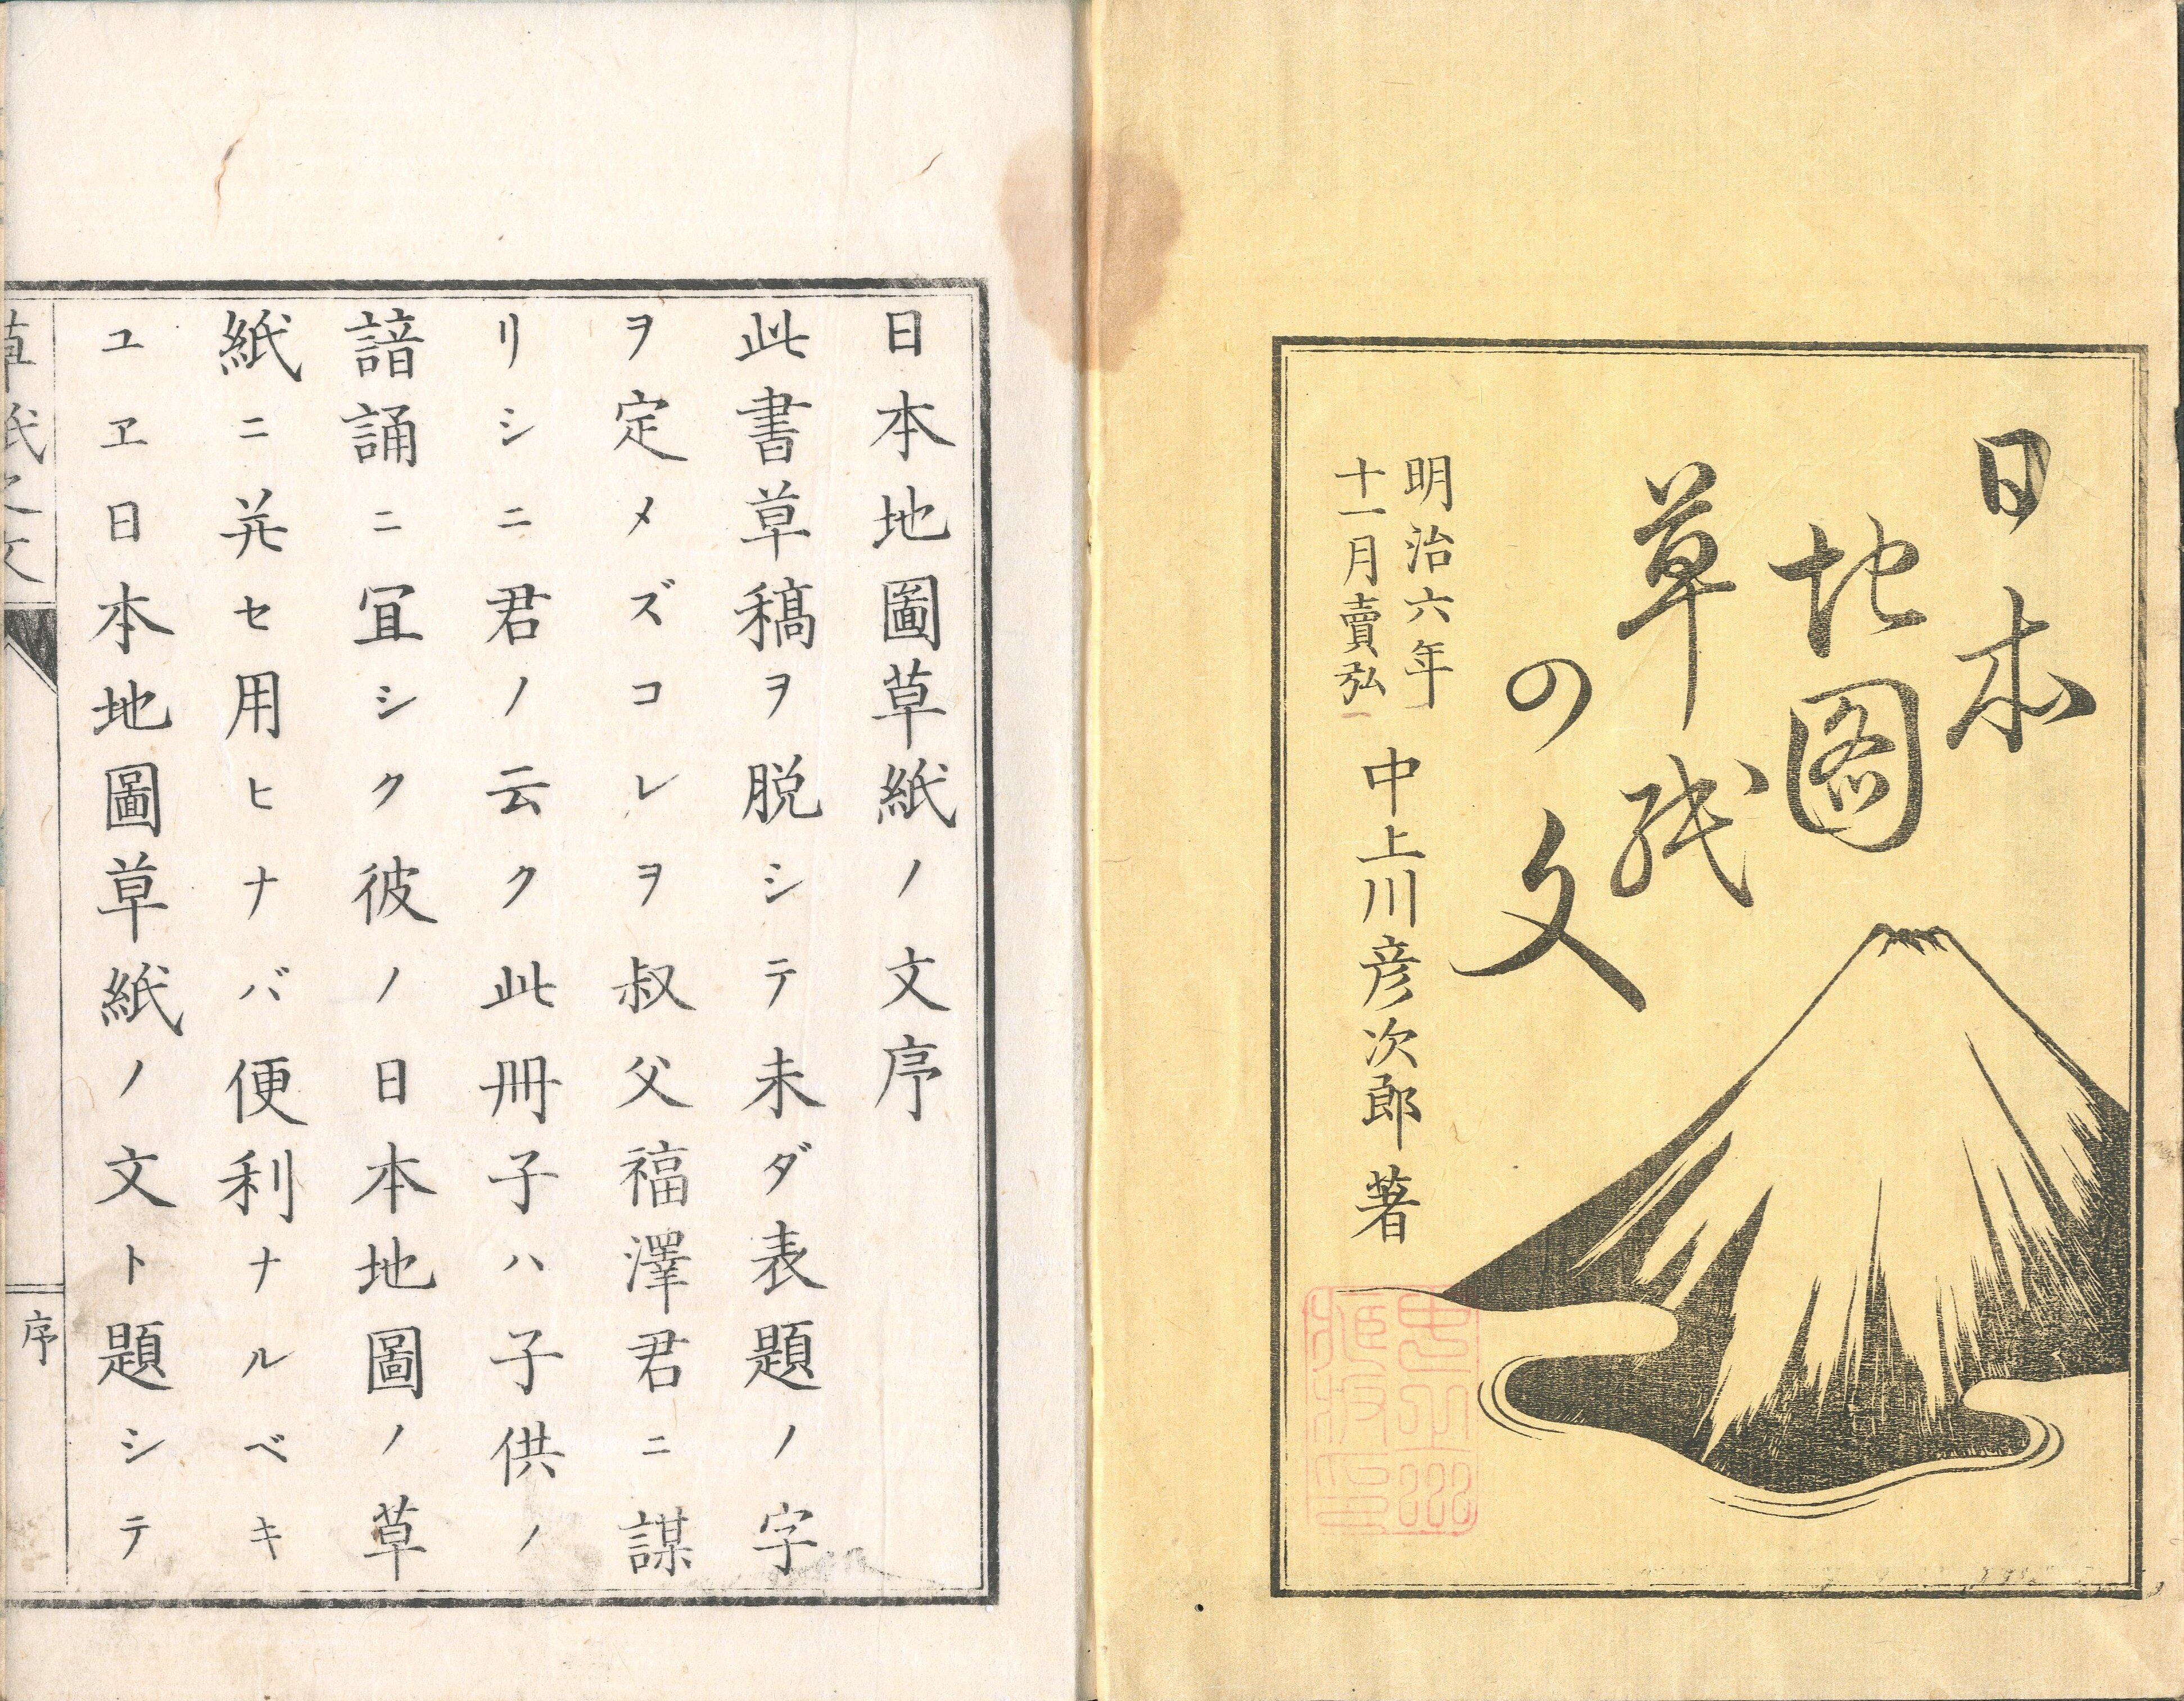 日本
地圖
草紙
の文
明治六年
十一月賣弘
中上川彦次郎 著
日本地圖草紙ノ文序
此書草稿ヲ脱シテ未ダ表題ノ字
ヲ定メズコレヲ叔父福澤君ニ謀
リシニ君ノ云ク此冊子ハ子供ノ
諳誦ニ冝シク彼ノ日本地圖ノ草
紙ニ并セ用ヒナバ便利ナルベキ
ユヱ日本地圖草紙ノ文ト題シテ
草紙之文
序